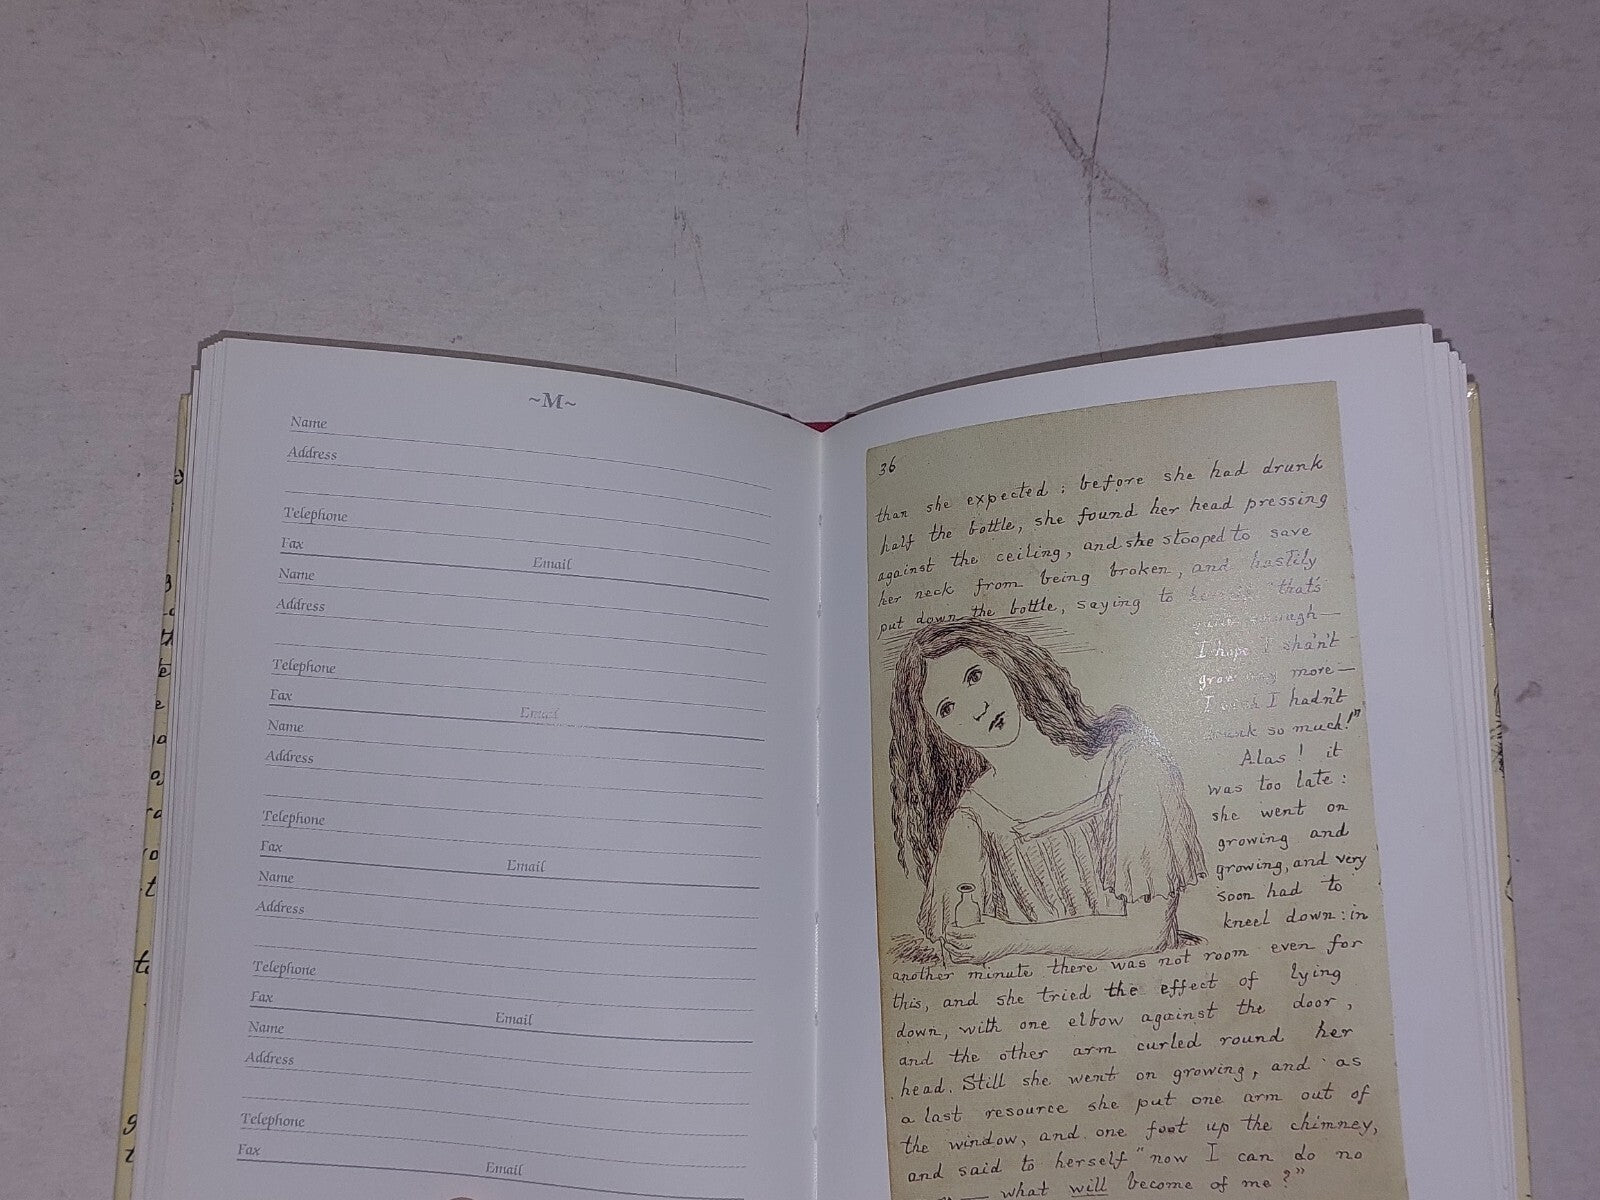 ~M~
Name
Address
Telephone
Fax Email
Name
Address
Telephone
Fax Email
Name
Address
Telephone
Fax Email
Name
Address
Telephone
Fax Email
Name
Address
Telephone
Fax Email
36
than she expected : before she had drunk
half the bottle, she found her head pressing
against the ceiling, and she stooped to save
her neck from being broken, and hastily
put down the bottle, saying to "that's
enough—
I hope I shan't
grow any more—
I I hadn't
drunk so much!"
Alas! it
was too late:
she went on
growing and
growing, and very
soon had to
kneel down: in
another minute there was not room even for
this, and she tried the effect of lying
down, with one elbow against the door,
and the other arm curled round her
head. Still she went on growing, and as
a last resource she put one arm out of
the window, and one foot up the chimney,
and said to herself "now I can do no
— what will become of me?"